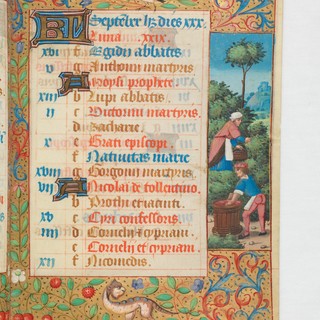 KL Septeber hz dies xxx.
Luna xxix.
xvi f Egidii abbatis
v g Anthonii martyris
A Moysi prophete.
xiii b Lupi abbatis.
ii c Victorini martyris.
d Zacharie
x e Grati episcopi.
f Nativitas marie
xviii g Gorgonii martyris.
vii A Nicolai de tollentino.
b Prothi et iacinti.
xv c Cyri confessoris.
iiii d Cornelii et cypriani.
e Cornelii et cypriani.
xii f Nicomedis.